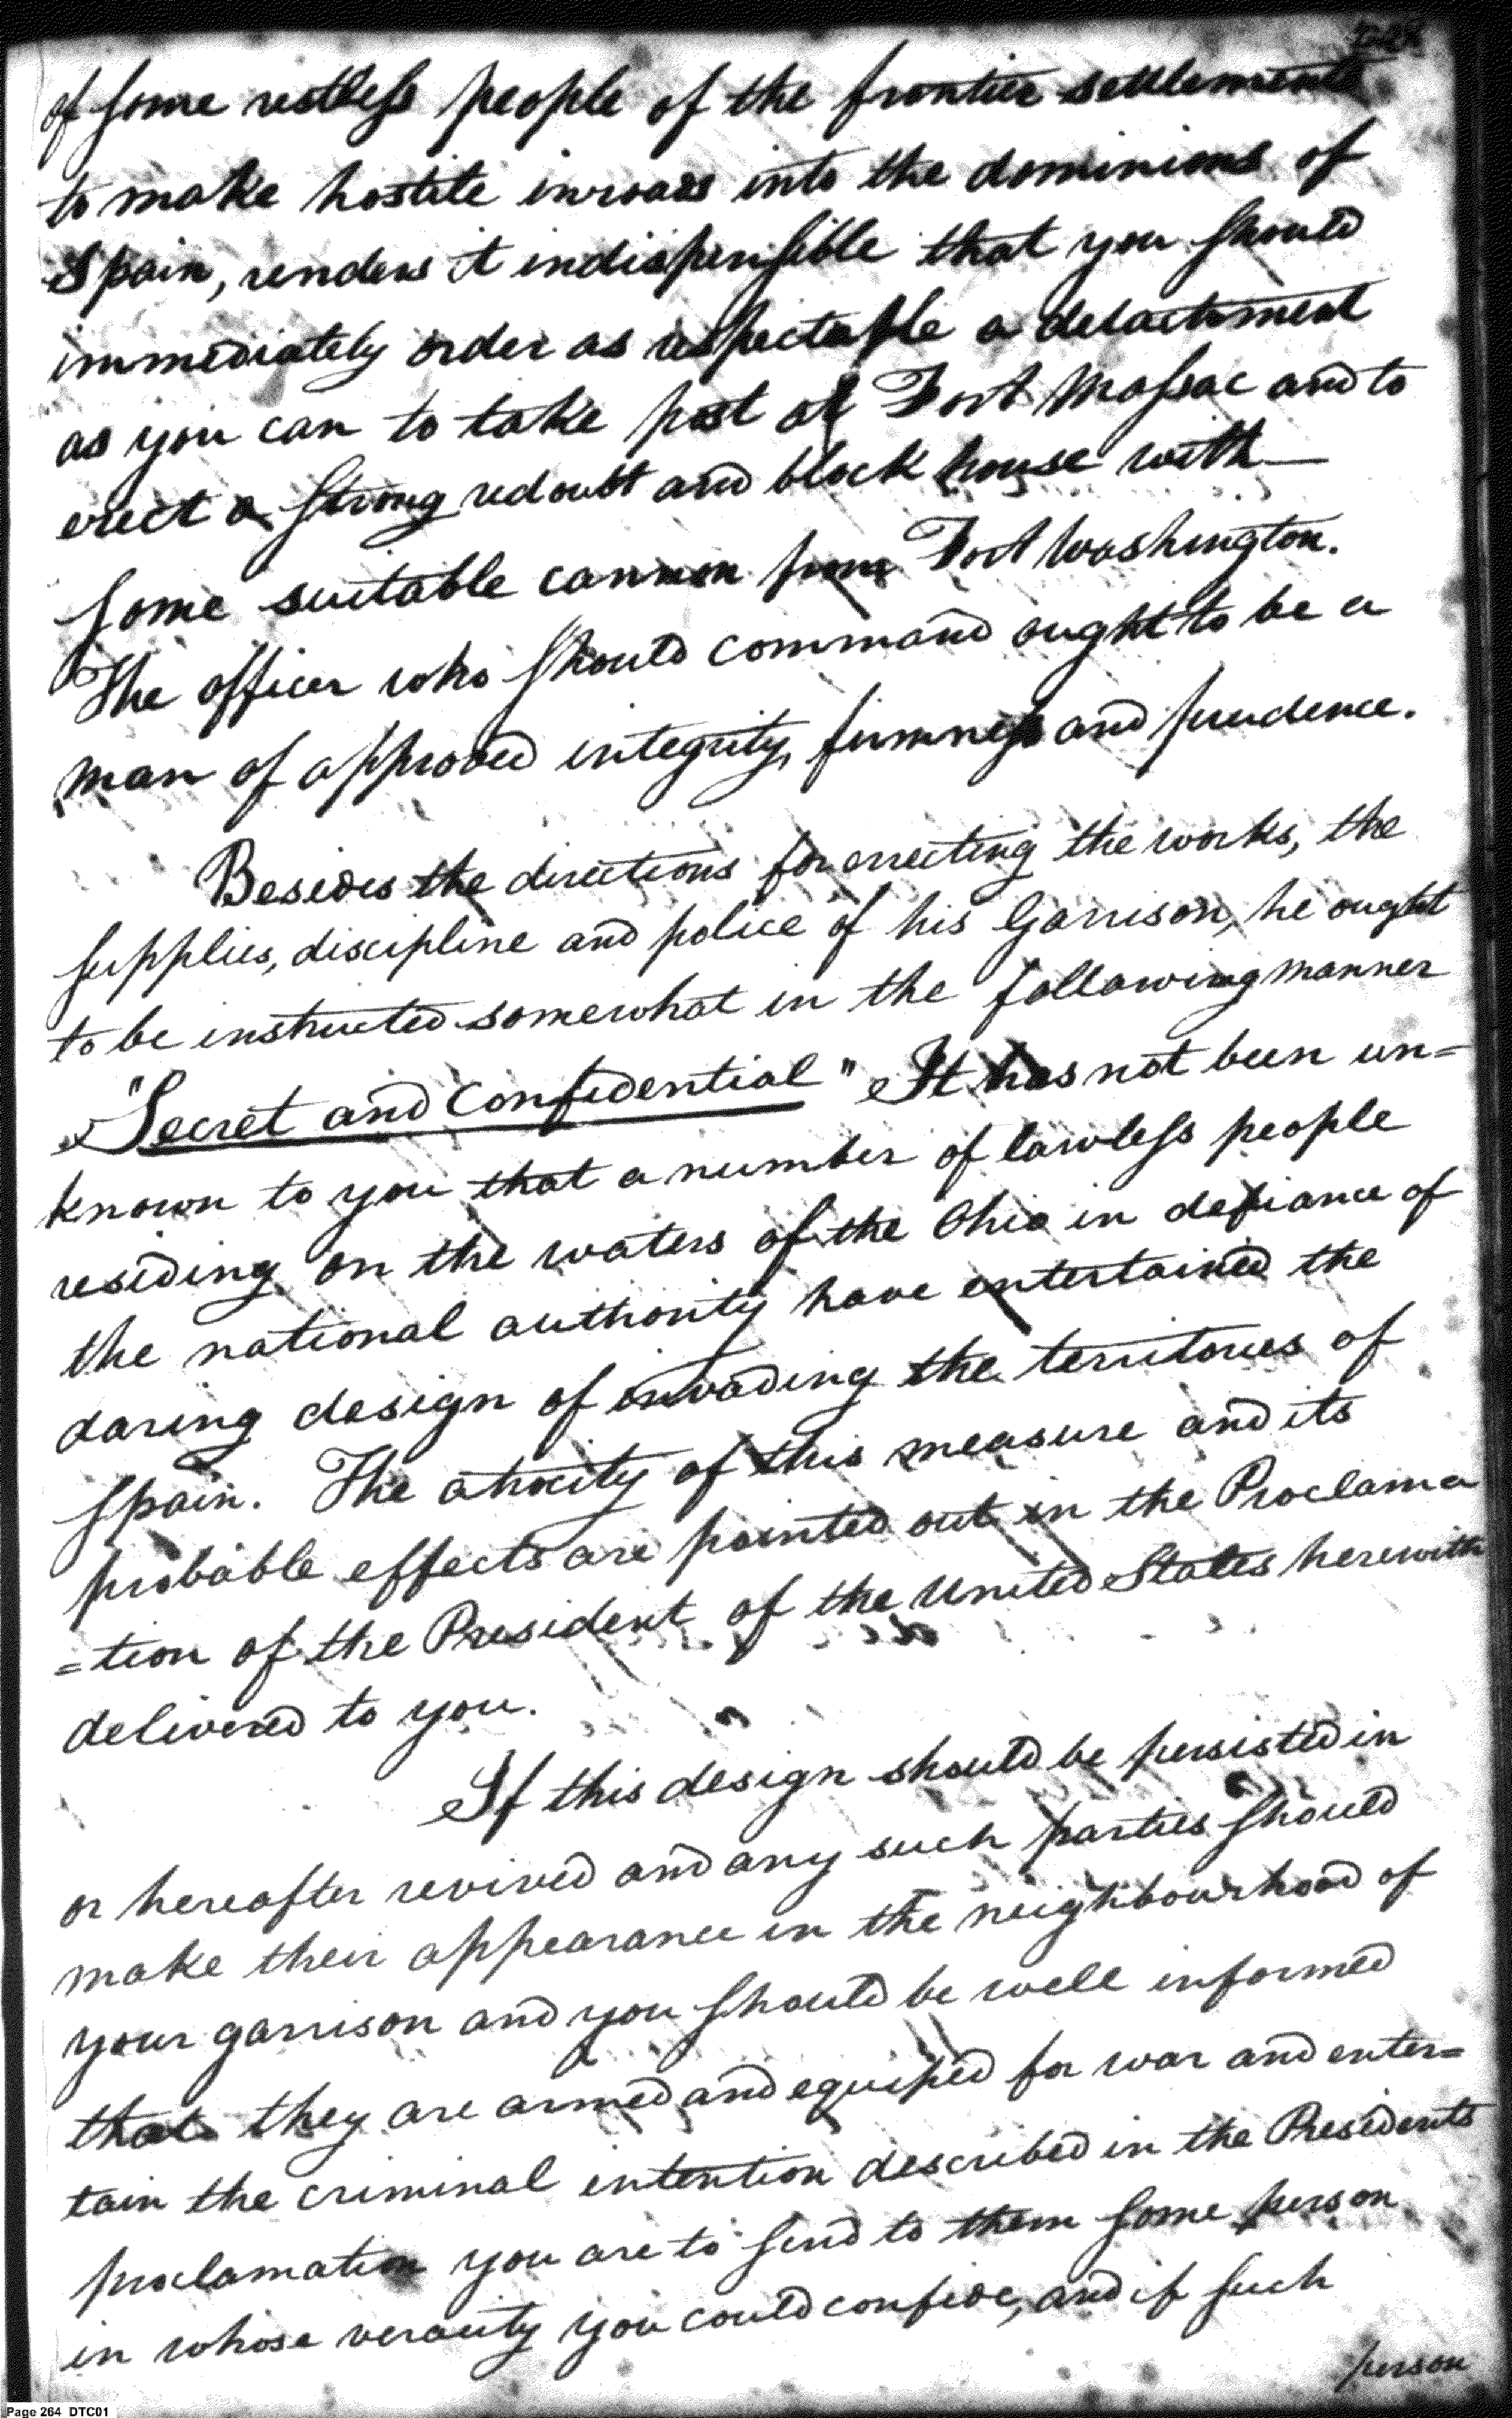 of some restless people of the frontier settlements
to make hostile inroads into the dominions of
Spain, renders it indispensible that you should
immediately order as respectable a detachment
as you can to take post at Fort Massac and to
erect a strong redoubt and block house with
some suitable cannon from Fort Washington.
The officer who should command ought to be a
man of approved integrity, firmness and prudence.
Besides the directions for errecting the works, the
supplies, discipline and police of his Garrison, he ought
to be instructed somewhat in the following manner
"Secret and Confidential" It has not been un=
known to you that a number of lawless people
residing on the waters of the Ohio in defiance of
the national authority have entertained the
daring design of invading the territories of
Spain. The atrocity of this measure and its
probable effects are pointed out in the Proclama
=tion of the President of the United States herewith
delivered to you.
If this design should be persisted in
or hereafter revived and any such parties should
make their appearance in the neighbourhood of
your garrison and you should be well informed
that they are armed and equiped for war and enter=
tain the criminal intention described in the Presidents
proclamation you are to send to them some person
in whose veracity you could confide, and if such
person
Page 264 DTC01